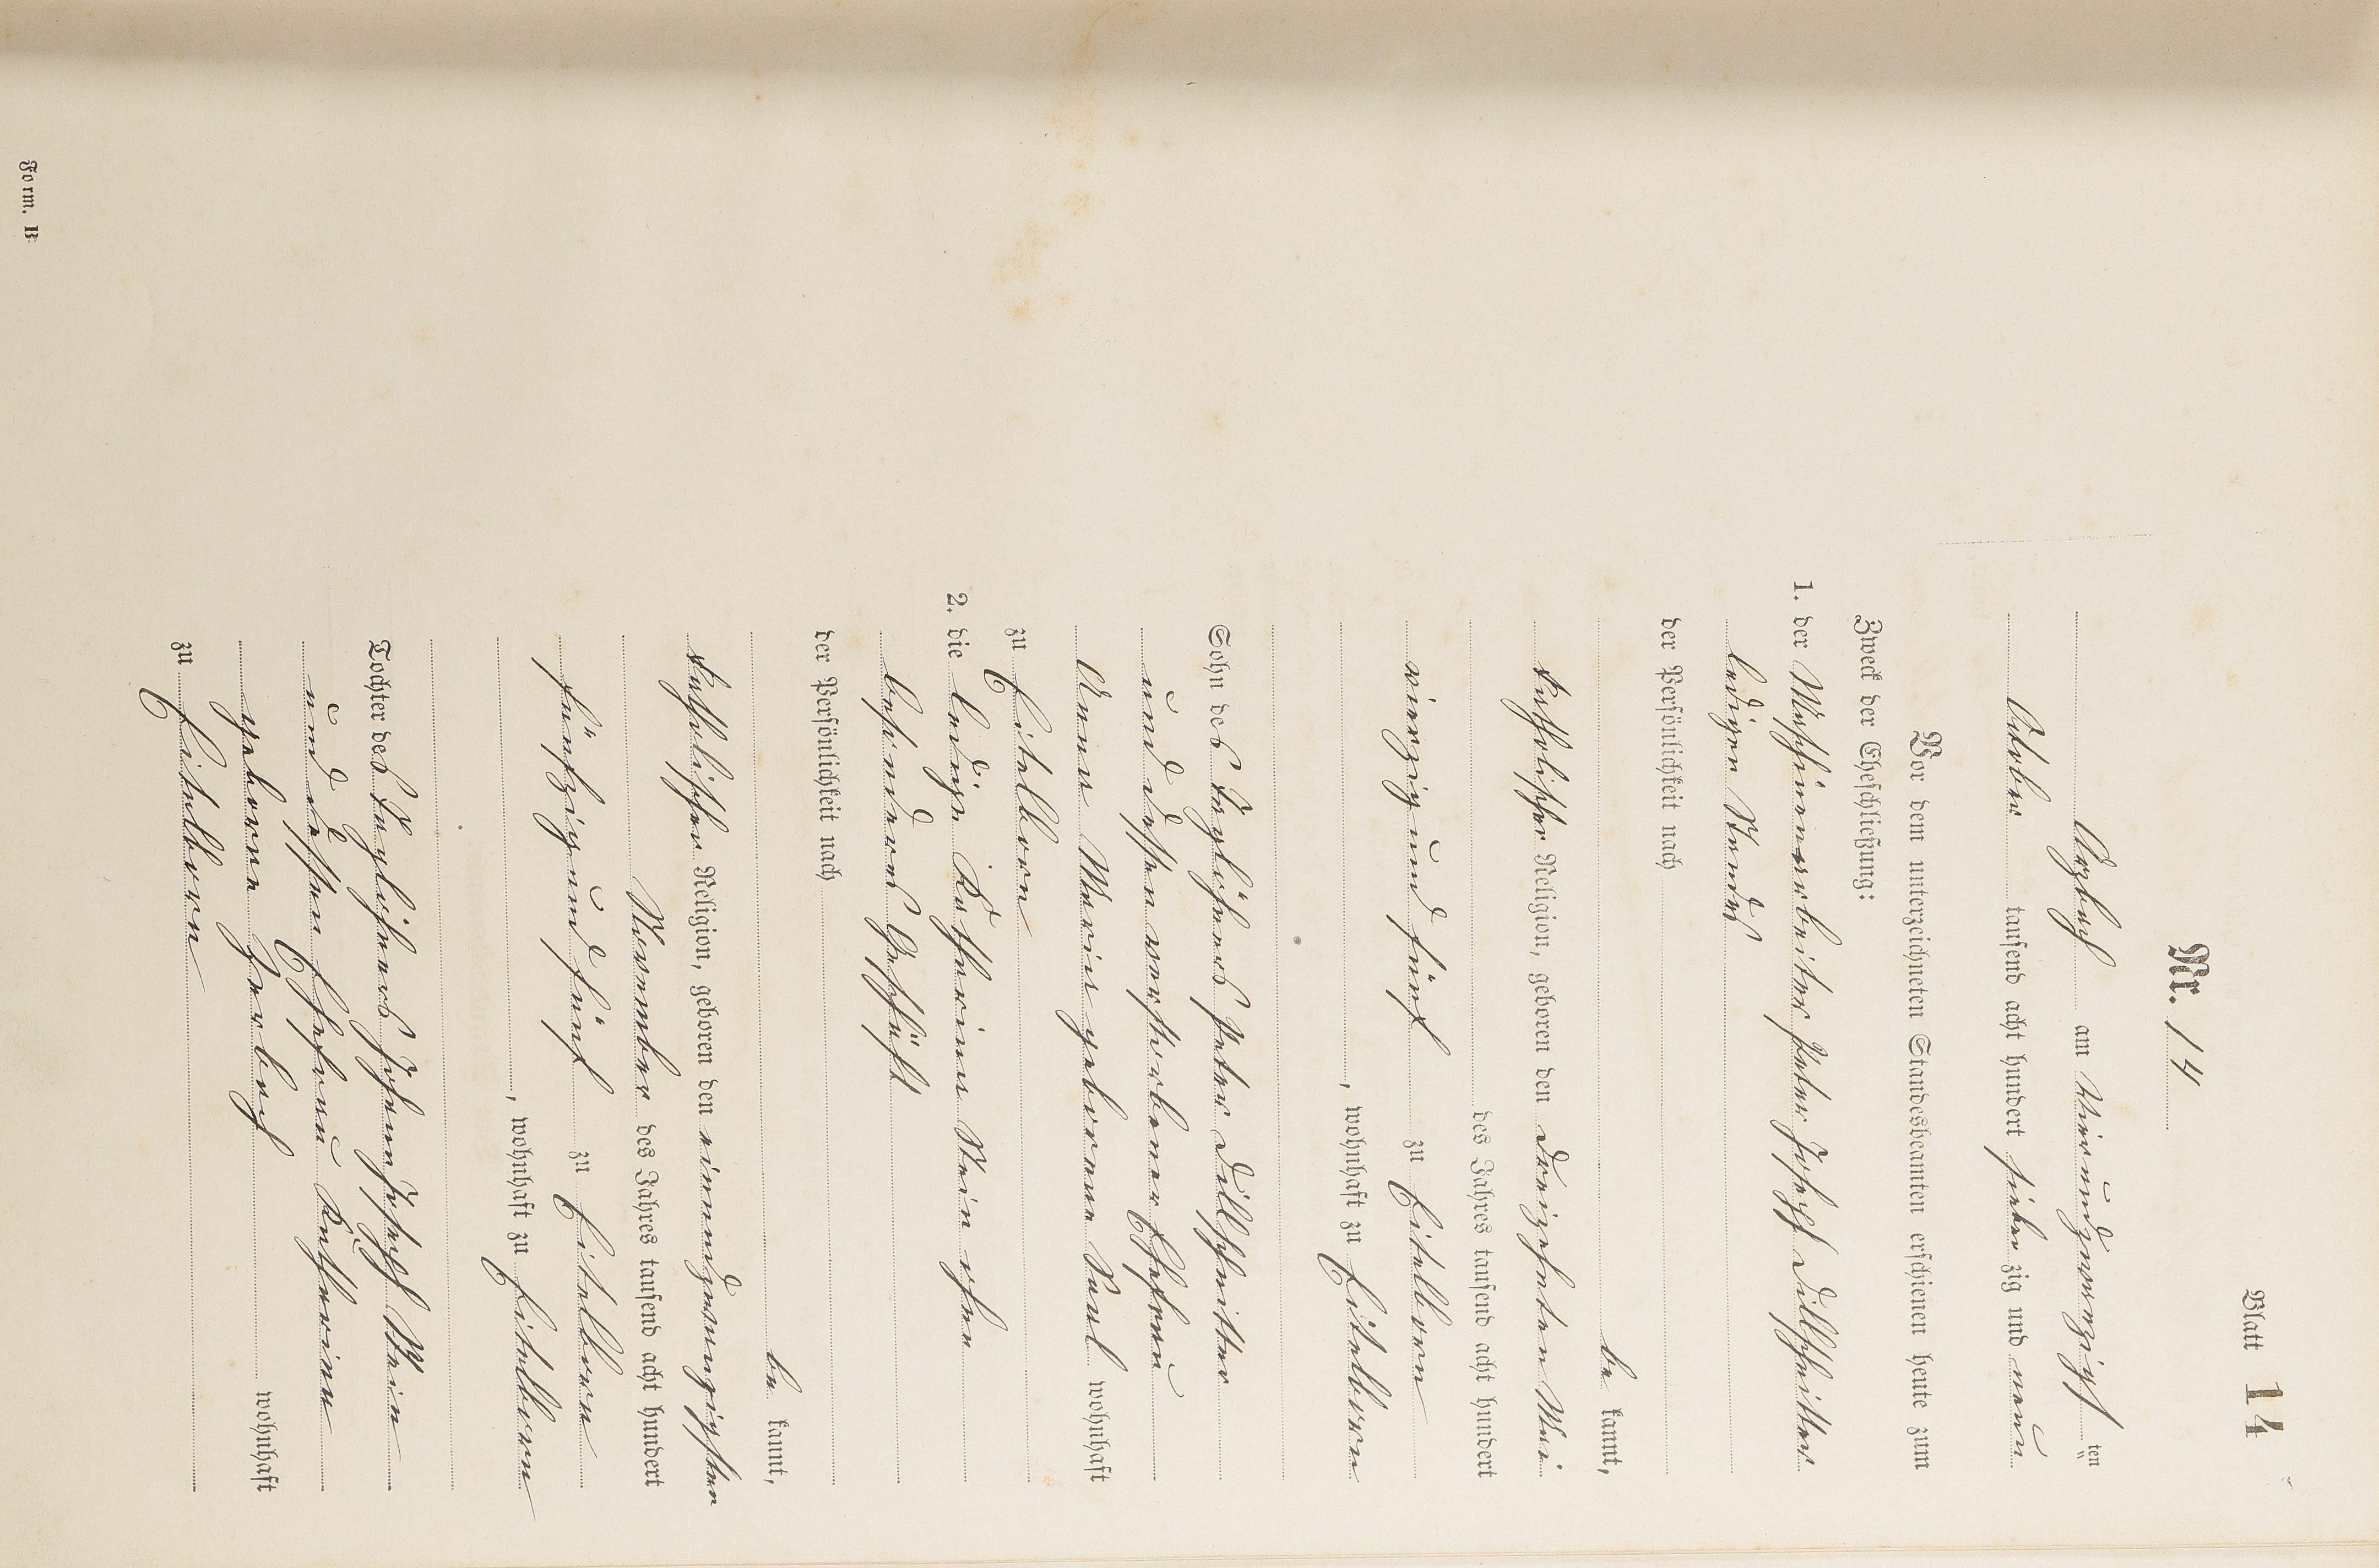 Blatt 14
Nr. 14
Arzbach am Vierundzwanzigsten
October tausend acht hundert siebenzig und neun
Vor dem unterzeichneten Standesbeamten erschienen heute zum
Zweck der Eheschließung:
1. der Maschinenarbeiter Peter Joseph Dillschnitter
ledigen Standes
der Persönlichkeit nach
be kannt,
katholischer Religion, geboren den dreizehnten Mai
des Jahres tausend acht hundert
vierzig und fünf zu Eitelborn
, wohnhaft zu Eitelborn
Sohn des Taglöhners Peter Dillschnitter
und dessen verstorbener Ehefrau
Anna Maria geborene Paul wohnhaft
zu Eitelborn
2. die ledige Katharina Stein ohne
besonderes Geschäft
der Persönlichkeit nach
be kannt,
katholischer Religion, geboren den einundzwanzigsten
November des Jahres tausend acht hundert
fünfzig und fünf zu Eitelborn
, wohnhaft zu Eitelborn
Tochter des Taglöhners Johann Joseph Stein
und dessen Ehefrau Katharina
geborene Herbach wohnhaft
zu Eitelborn
Form. B